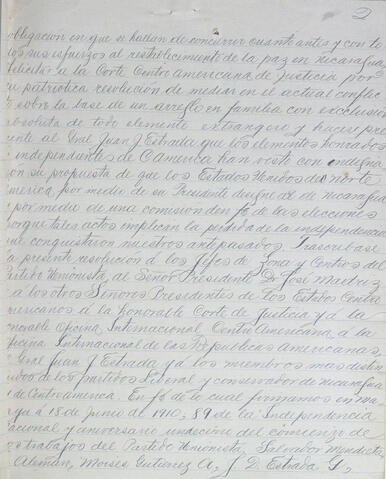 2
obligacion en que se hallan de concurrir cuanto antes y con to
los sus esfuerzos al restablecimiento de la paz en Nicaragua,
felicitar a la Corte Centro americana de Justicia por
su patriotica resolucion de mediar en el actual conflic
to sobre la base de un arreglo en familia con exclusion
absoluta de todo elemento extrangero y hacer pre
sente al Gral Juan J. Estrada que los elementos honrados
é independientes de C. America han visto con indigna
cion su propuesta de que los Estados Unidos del norte
America por medio de su Presidente de Nicaragua
por medio de una comision de las elecciones
porque tales actos implican la pérdida de la independencia
que conquistaron nuestros antepasados. Trascribase
la presente resolucion á los Jefes de Zona y Centros del
Partido Unionista, al Señor Presidente Dr José Madriz
a los otros Señores Presidentes de los Estados Centro
americanos á la honorable Corte de Justicia y á la
honorable Oficina Internacional Centro Americana, a la
oficina Internacional de las Republicas americanas,
Gral Juan J. Estrada y á los miembros mas distin
guidos de los Partidos Liberal y conservador de Nicaragua
de Centroamerica. En fé de lo cual firmamos en
á 18 de Junio de 1910, 89 de la Independencia
nacional y aniversario undecimo del comienzo de
los trabajos del Partido Unionista, Salvador Mendieta
Alemán, Moises Gutierrez A, J. D. Estrada